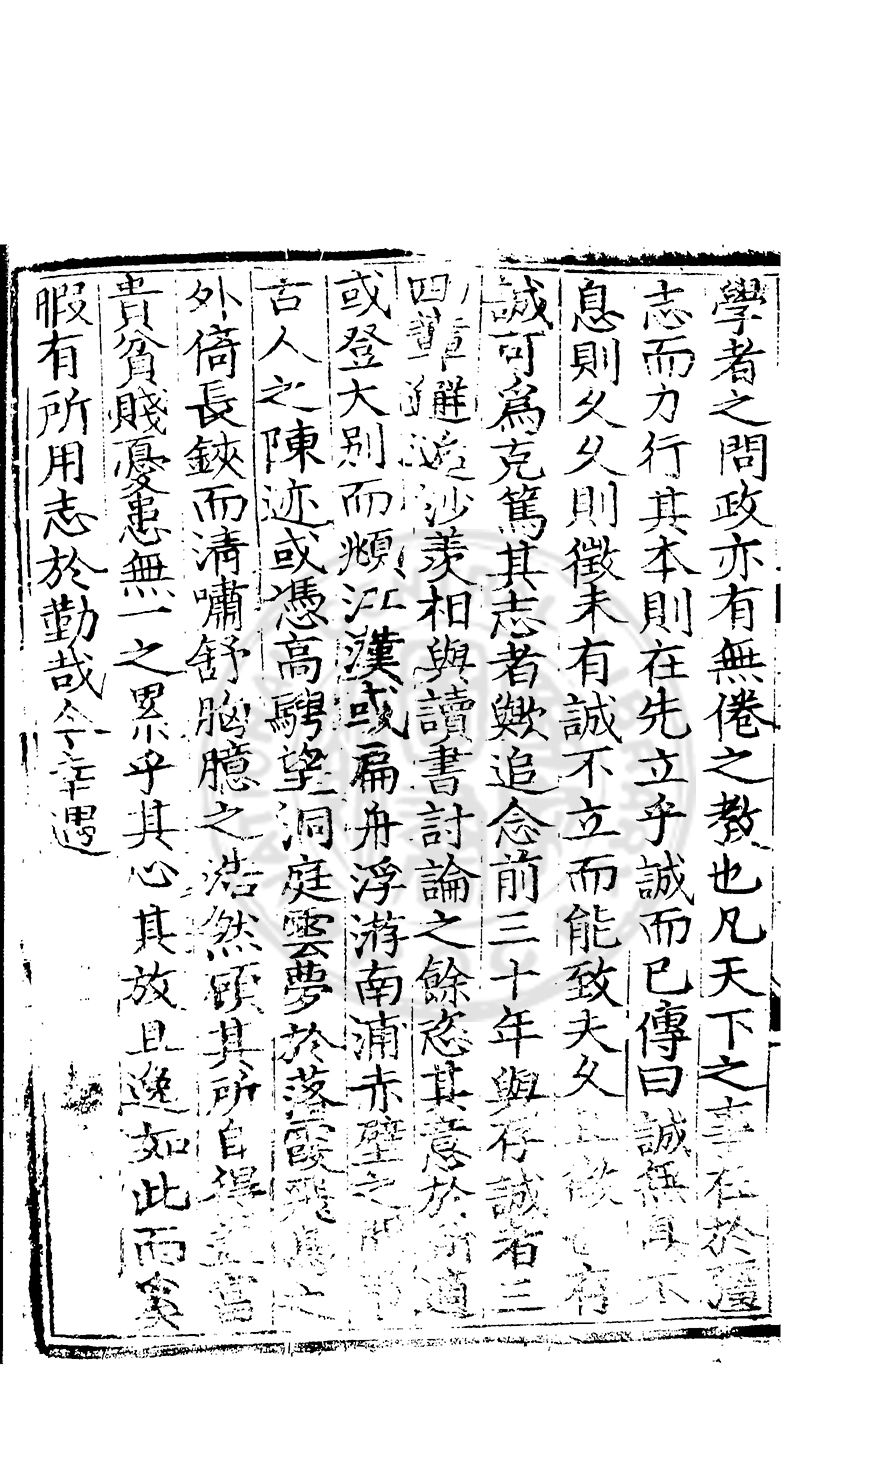 學者之問政亦有無倦之教也凡天下之事在於彊
志而力行其本則在先立乎誠而已傳曰誠無息不
息則久久則徵未有誠不立而能致夫久且徵也有
誠可爲克篤其志者歟追念前三十年與存誠者三
四輩邂逅沙羨相與讀書討論之餘恣其意於所適
或登大別而頫江漢或扁舟浮游南浦赤壁之間弔
古人之陳迹或憑高騁望洞庭雲夢於落霞飛鳧之
外倚長鋏而清嘯舒胸臆之浩然顧其所自得並富
貴貧賤憂患無一之累乎其心其放且逸如此而奚
暇有所用志於勤哉今幸遇